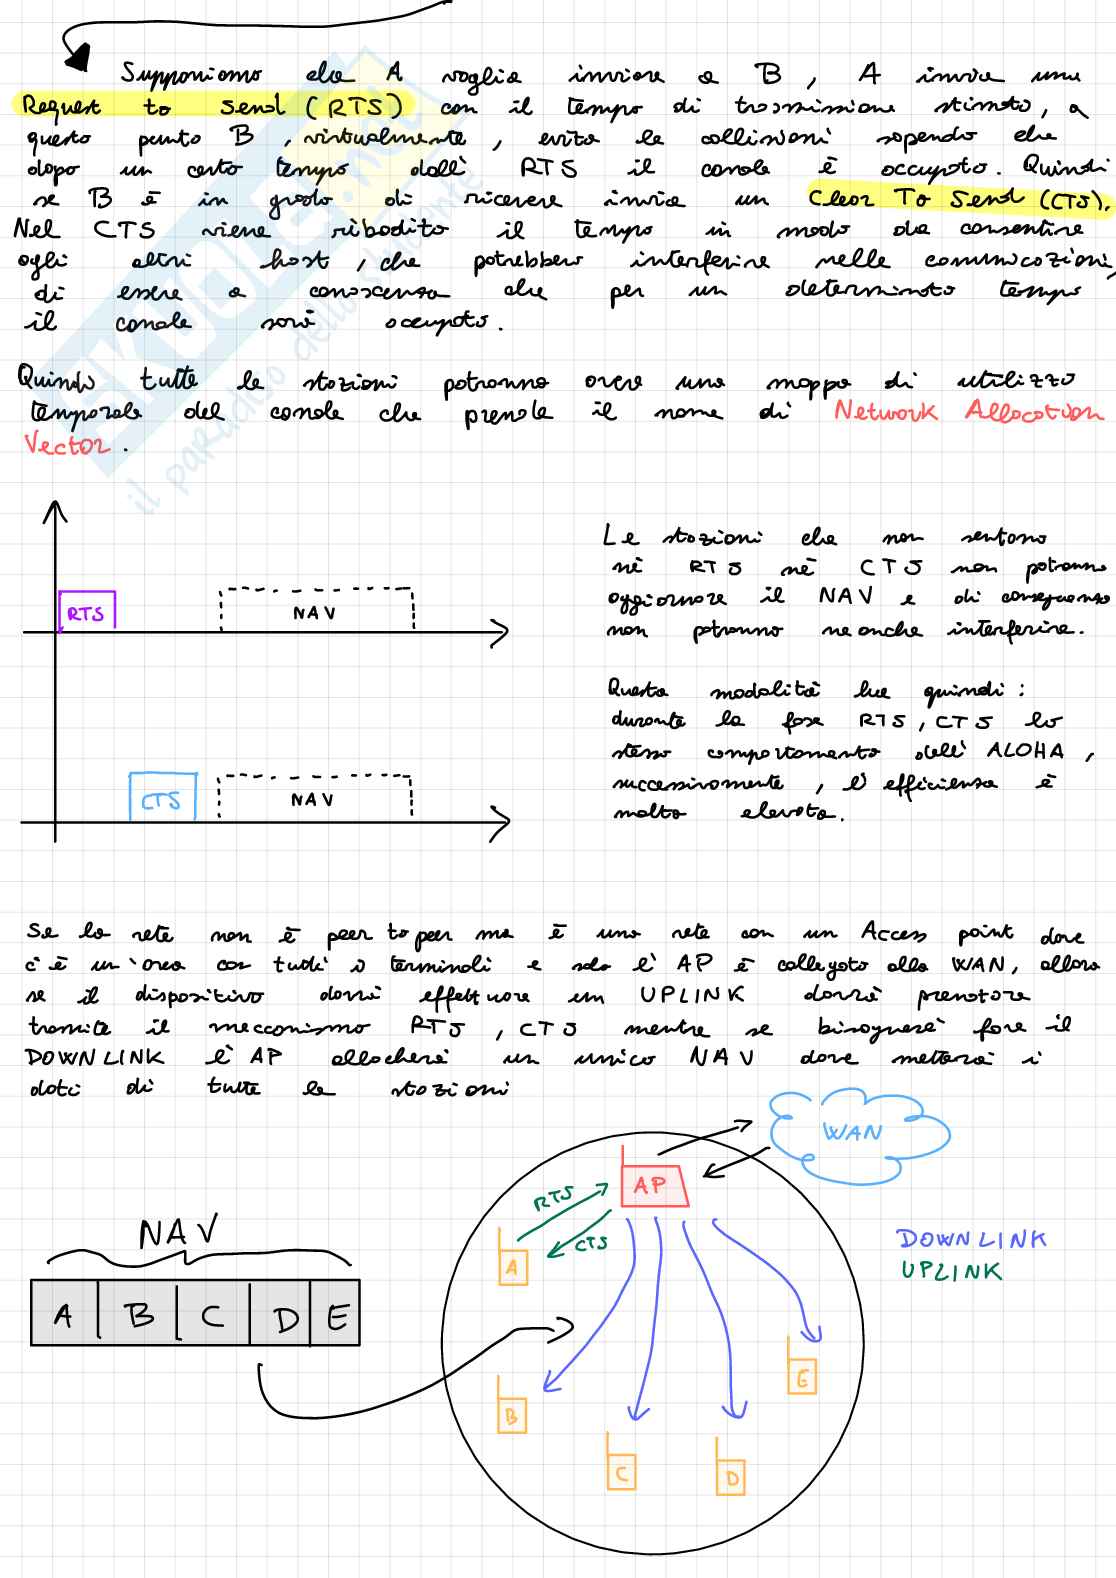 Supponiamo che A voglia inviare a B, A invia una
Request to Send (RTS) con il tempo di trasmissione stimato, a
questo punto B, virtualmente, evita le collisioni sapendo che
dopo un certo tempo dall' RTS il canale è occupato. Quindi
se B è in grado di ricevere invia un Clear To Send (CTS).
Nel CTS viene ribadito il tempo in modo da consentire
agli altri host, che potrebbero interferire nelle comunicazioni,
di essere a conoscenza che per un determinato tempo
il canale sarà occupato.
Quindi tutte le stazioni potranno avere una mappa di utilizzo
temporale del canale che prende il nome di Network Allocation
Vector.
Le stazioni che non sentono
nè RTS nè CTS non potranno
aggiornare il NAV e di conseguenza
non potranno neanche interferire.
RTS
NAV
Questa modalità ha quindi:
durante la fase RTS, CTS lo
stesso comportamento dell' ALOHA,
successivamente, l'efficienza è
molto elevata.
CTS
NAV
Se la rete non è peer to peer ma è una rete con un Access point dove
c'è un'area con tutti i terminali e solo l'AP è collegato alla WAN, allora
se il dispositivo dovrà effettuare un UPLINK dovrà prenotare
tramite il meccanismo RTS, CTS mentre se bisognerà fare il
DOWNLINK l'AP allocherà un unico NAV dove metterà i
dati di tutte le stazioni
WAN
AP
RTS
CTS
A
NAV
DOWNLINK
UPLINK
A B C D E
B
C
D
E
SKUOLA.net
il paradiso dello studente